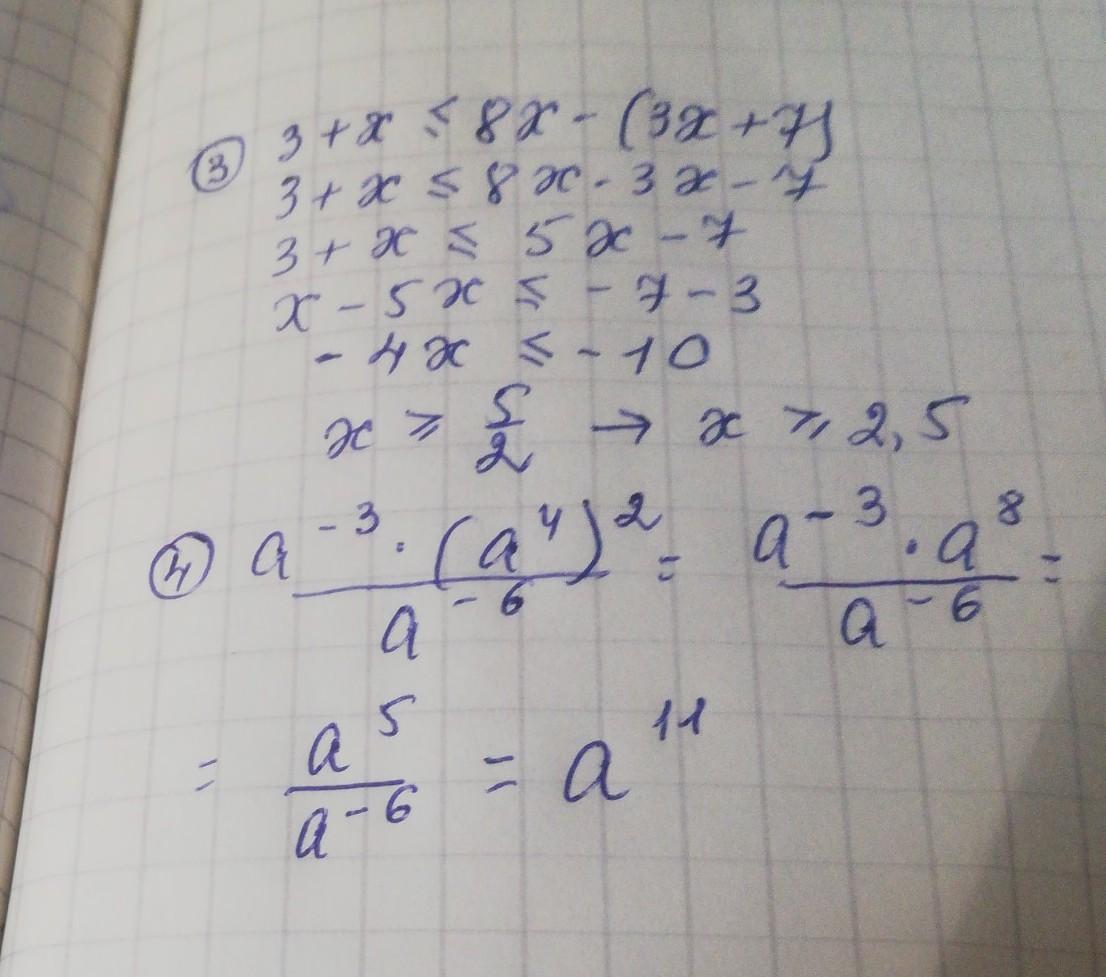 ③ 3 + x ≤ 8x - (3x + 7)
3 + x ≤ 8x - 3x - 7
3 + x ≤ 5x - 7
x - 5x ≤ - 7 - 3
- 4x ≤ - 10
x ≥ 5/2 → x ≥ 2,5
④ (a⁻³ · (a⁴)²)/a⁻⁶ = (a⁻³ · a⁸)/a⁻⁶ =
= a⁵/a⁻⁶ = a¹¹